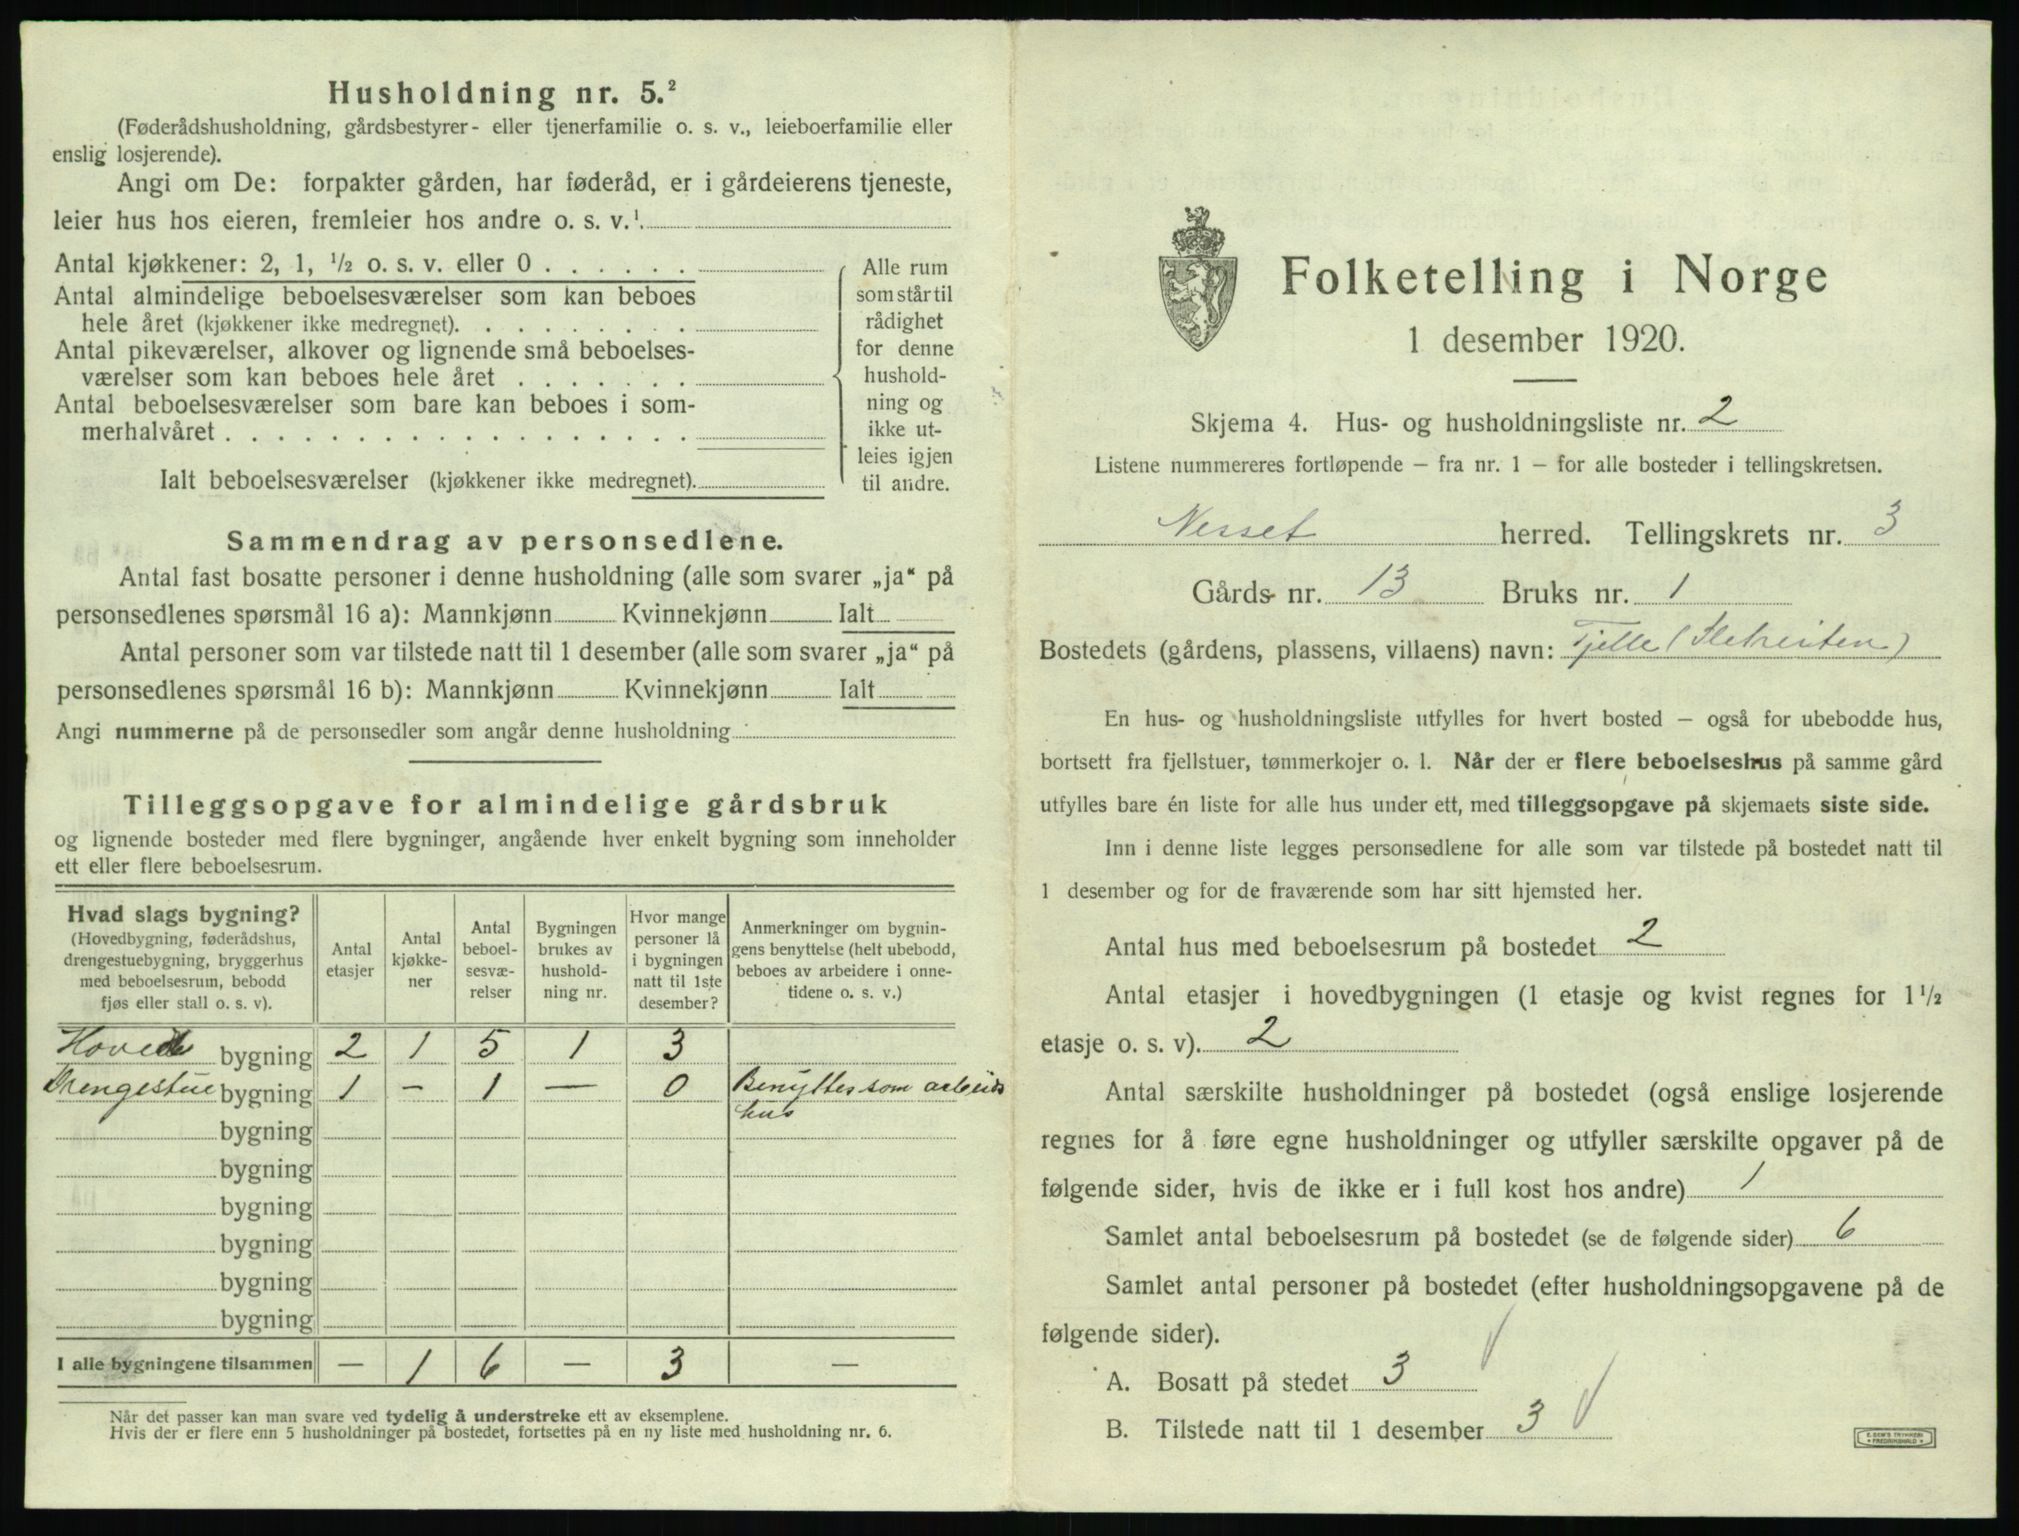 Husholdning nr. 5.²
(Føderådshusholdning, gårdsbestyrer- eller tjenerfamilie o. s. v., leieboerfamilie eller
enslig losjerende).
Angi om De: forpakter gården, har føderåd, er i gårdeierens tjeneste,
leier hus hos eieren, fremleier hos andre o. s. v.¹
Antal kjøkkener: 2, 1, ½ o. s. v. eller 0 . . . . . .
Antal almindelige beboelsesværelser som kan beboes
hele året (kjøkkener ikke medregnet). . . . . . . . .
Antal pikeværelser, alkover og lignende små beboelses-
værelser som kan beboes hele året . . . . . . .
Antal beboelsesværelser som bare kan beboes i som-
merhalvåret . . . . . . . . . . . . . . . . . .
Ialt beboelsesværelser (kjøkkener ikke medregnet).
Alle rum
som står til
rådighet
for denne
hushold-
ning og
ikke ut-
leies igjen
til andre.
Sammendrag av personsedlene.
Antal fast bosatte personer i denne husholdning (alle som svarer „ja“ på
personsedlenes spørsmål 16 a): Mannkjønn Kvinnekjønn Ialt
Antal personer som var tilstede natt til 1 desember (alle som svarer „ja“ på
personsedlenes spørsmål 16 b): Mannkjønn Kvinnekjønn Ialt
Angi nummerne på de personsedler som angår denne husholdning
Tilleggsopgave for almindelige gårdsbruk
og lignende bosteder med flere bygninger, angående hver enkelt bygning som inneholder
ett eller flere beboelsesrum.
Hvad slags bygning?
(Hovedbygning, føderådshus,
drengestuebygning, bryggerhus
med beboelsesrum, bebodd
fjøs eller stall o. s. v).
Antal
etasjer
Antal
kjøkke-
ner
Antal
beboel-
sesvæ-
relser
Bygningen
brukes av
hushold-
ning nr.
Hvor mange
personer lå
i bygningen
natt til 1ste
desember?
Anmerkninger om bygnin-
gens benyttelse (helt ubebodd,
beboes av arbeidere i onne-
tidene o. s. v.)
Hoved bygning 2 1 5 1 3
Drengestue bygning 1 – 1 — 0 Benyttes som arbeids
hus
bygning
bygning
bygning
bygning
bygning
bygning
I alle bygningene tilsammen — 1 6 — 3 —
Når det passer kan man svare ved tydelig å understreke ett av eksemplene.
Hvis der er flere enn 5 husholdninger på bostedet, fortsettes på en ny liste med husholdning nr. 6.
Folketelling i Norge
1 desember 1920.
Skjema 4. Hus- og husholdningsliste nr. 2
Listene nummereres fortløpende – fra nr. 1 – for alle bosteder i tellingskretsen.
Nesset herred. Tellingskrets nr. 3
Gårds nr. 13 Bruks nr. 1
Bostedets (gårdens, plassens, villaens) navn: Tjelle
En hus- og husholdningsliste utfylles for hvert bosted – også for ubebodde hus,
bortsett fra fjellstuer, tømmerkojer o. l. Når der er flere beboelseshus på samme gård
utfylles bare én liste for alle hus under ett, med tilleggsopgave på skjemaets siste side.
Inn i denne liste legges personsedlene for alle som var tilstede på bostedet natt til
1 desember og for de fraværende som har sitt hjemsted her.
Antal hus med beboelsesrum på bostedet 2
Antal etasjer i hovedbygningen (1 etasje og kvist regnes for 1½
etasje o. s. v). 2
Antal særskilte husholdninger på bostedet (også enslige losjerende
regnes for å føre egne husholdninger og utfyller særskilte opgaver på de
følgende sider, hvis de ikke er i full kost hos andre) 1
Samlet antal beboelsesrum på bostedet (se de følgende sider) 6
Samlet antal personer på bostedet (efter husholdningsopgavene på de
følgende sider).
A. Bosatt på stedet 3
B. Tilstede natt til 1 desember 3